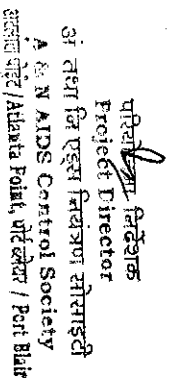 परियोजना निदेशक
Project Director
अं तथा नि एड्स नियंत्रण सोसाइटी
A & N AIDS Control Society
अटलांटा पाइंट/Atlanta Point, पोर्टब्लेयर / Port Blair